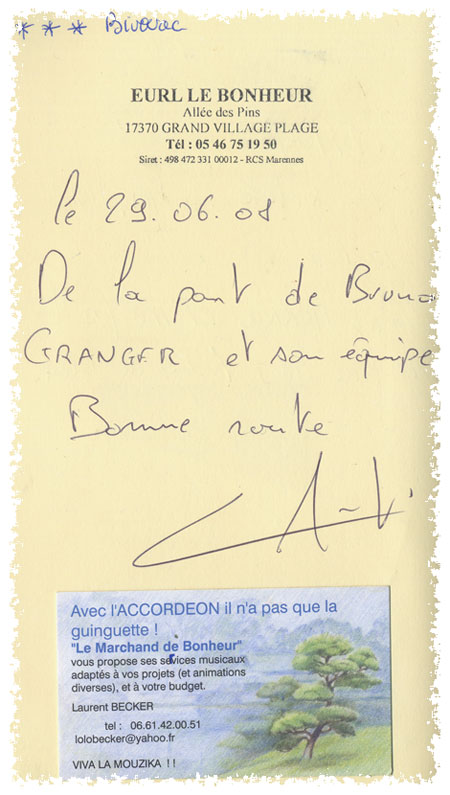 * * * Bivouac
EURL LE BONHEUR
Allée des Pins
17370 GRAND VILLAGE PLAGE
Tél : 05 46 75 19 50
Siret : 498 472 331 00012 - RCS Marennes
le 29.06.08
De la part de Bruno
GRANGER et son équipe
Bonne route
Avec l'ACCORDEON il n'a pas que la
guinguette !
"Le Marchand de Bonheur"
vous propose ses services musicaux
adaptés à vos projets (et animations
diverses), et à votre budget.
Laurent BECKER
tel : 06.61.42.00.51
lolobecker@yahoo.fr
VIVA LA MOUZIKA ! !